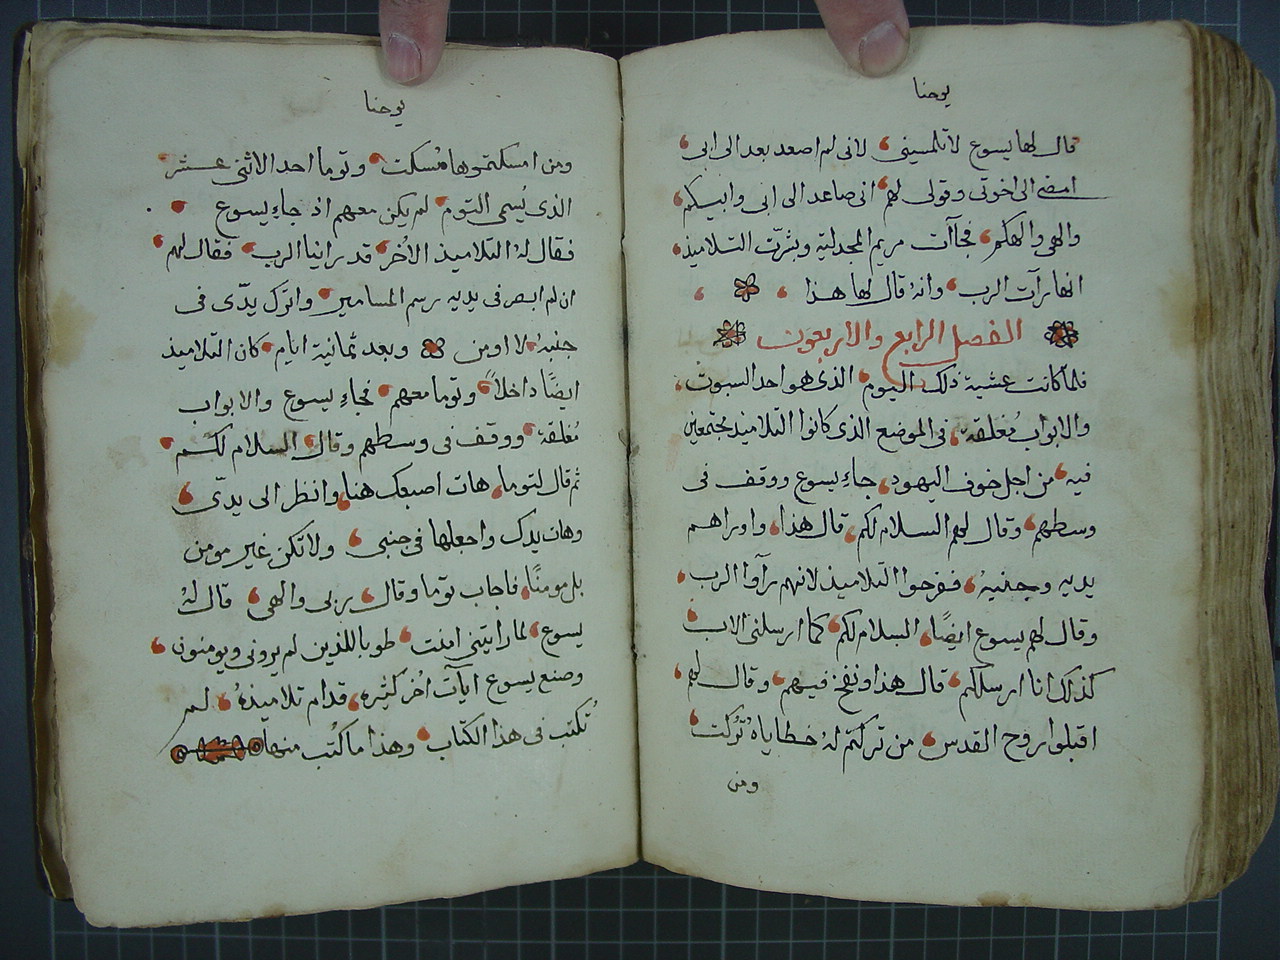 يوحنا
قال لها يسوع لا تلمسيني لاني لم اصعد بعد الى ابي
امضي الى اخوتي وقولي لهم اني صاعد الى ابي وابيكم
والهي والهكم فجاآت مريم المجدلية وبشرّت التلاميذ
انها رآت الرب وانهُ قال لها هذا
الفصل الرابع والاربعون
فلما كانت عشية ذلك اليوم الذي هو احد السبوت
والابواب مُغلقة في الموضع الذي كانوا التلاميذ مجتمعين
فيه من اجل خوف اليهود جاءِ يسوع ووقف في
وسطهم وقال لهم السلام لكم قال هذا واوراهم
يديه وجنبهُ ففرحوا التلاميذ لانهم رآوا الرب
وقال لهم يسوع ايضًا السلام لكم كما ارسلني الاب
كذلك انا ارسلكم قال هذا ونفخ فيهم وقال لهم
اقبلوا روح القدس من تركتم لهُ خطاياه تُركت
ومن
يوحنا
ومن امسكتموها مُسكت وتوما احد الاثني عشر
الذي يُسمى التوم لم يكن معهم اذ جاءِ يسوع
فقال لهُ التلاميذ الاُخر قد راينا الرب فقال لهم
ان لم ابصر في يديه رسم المسامير واترك يدّي في
جنبهُ لا اومن وبعد ثمانية ايام كان التلاميذ
ايضًا داخلاً وتوما معهم فجاءِ يسوع والابواب
مُغلقة ووقف في وسطهم وقال السلام لكم
ثم قال لتوما هات اصبعك هنا وانظر الى يدّي
وهات يدك واجعلها في جنبي ولا تكن غير مومن
بل مومنًا فاجاب توما وقال ربي والهي قال لهُ
يسوع لما رايتني امنت طوبا للذين لم يروني ويومنون
وصنع يسوع ايآت اُخر كثيره قدام تلاميذهُ لم
تُكتب في هذا الكتاب وهذا ما كُتب منها